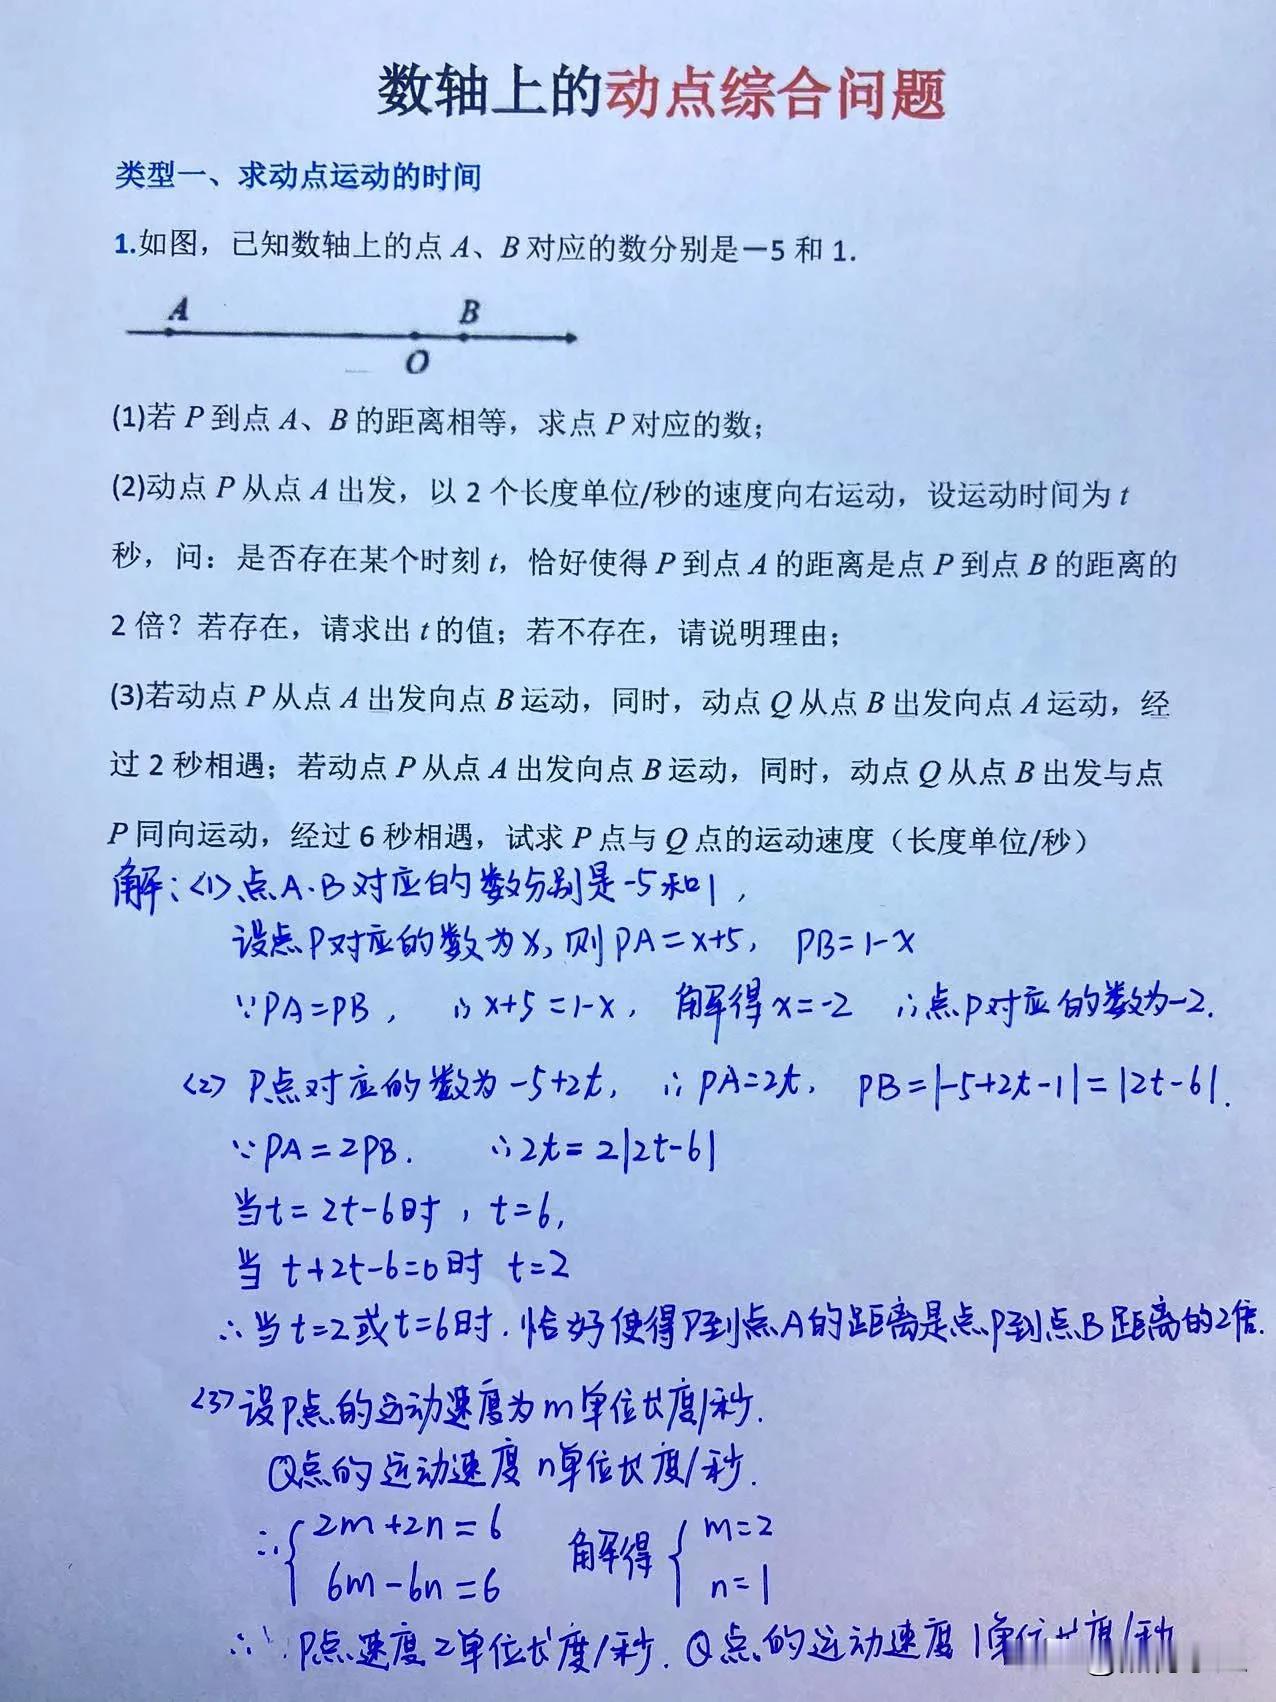 数轴上的动点综合问题
类型一、求动点运动的时间
1.如图，已知数轴上的点 A、B 对应的数分别是－5 和 1.
A
B
O
(1)若 P 到点 A、B 的距离相等，求点 P 对应的数；
(2)动点 P 从点 A 出发，以 2 个长度单位/秒的速度向右运动，设运动时间为 t
秒，问：是否存在某个时刻 t，恰好使得 P 到点 A 的距离是点 P 到点 B 的距离的
2 倍？若存在，请求出 t 的值；若不存在，请说明理由；
(3)若动点 P 从点 A 出发向点 B 运动，同时，动点 Q 从点 B 出发向点 A 运动，经
过 2 秒相遇；若动点 P 从点 A 出发向点 B 运动，同时，动点 Q 从点 B 出发与点
P 同向运动，经过 6 秒相遇，试求 P 点与 Q 点的运动速度（长度单位/秒）
解：<1> 点A.B对应的数分别是-5和1，
设点P对应的数为x，则PA=x+5， PB=1-x
∵PA=PB， ∴x+5=1-x， 解得x=-2 ∴点P对应的数为-2.
<2> P点对应的数为-5+2t， ∴PA=2t， PB=|-5+2t-1|=|2t-6|.
∵PA=2PB. ∴2t=2|2t-6|
当t=2t-6时，t=6,
当 t+2t-6=0时 t=2
∴当t=2或t=6时.恰好使得P到点A的距离是点P到点B距离的2倍.
<3> 设P点的运动速度为m单位长度/秒.
Q点的运动速度n单位长度/秒.
∴{2m+2n=6 解得{m=2
6m-6n=6 n=1
∴P点速度2单位长度/秒.Q点的运动速度1单位长度/秒